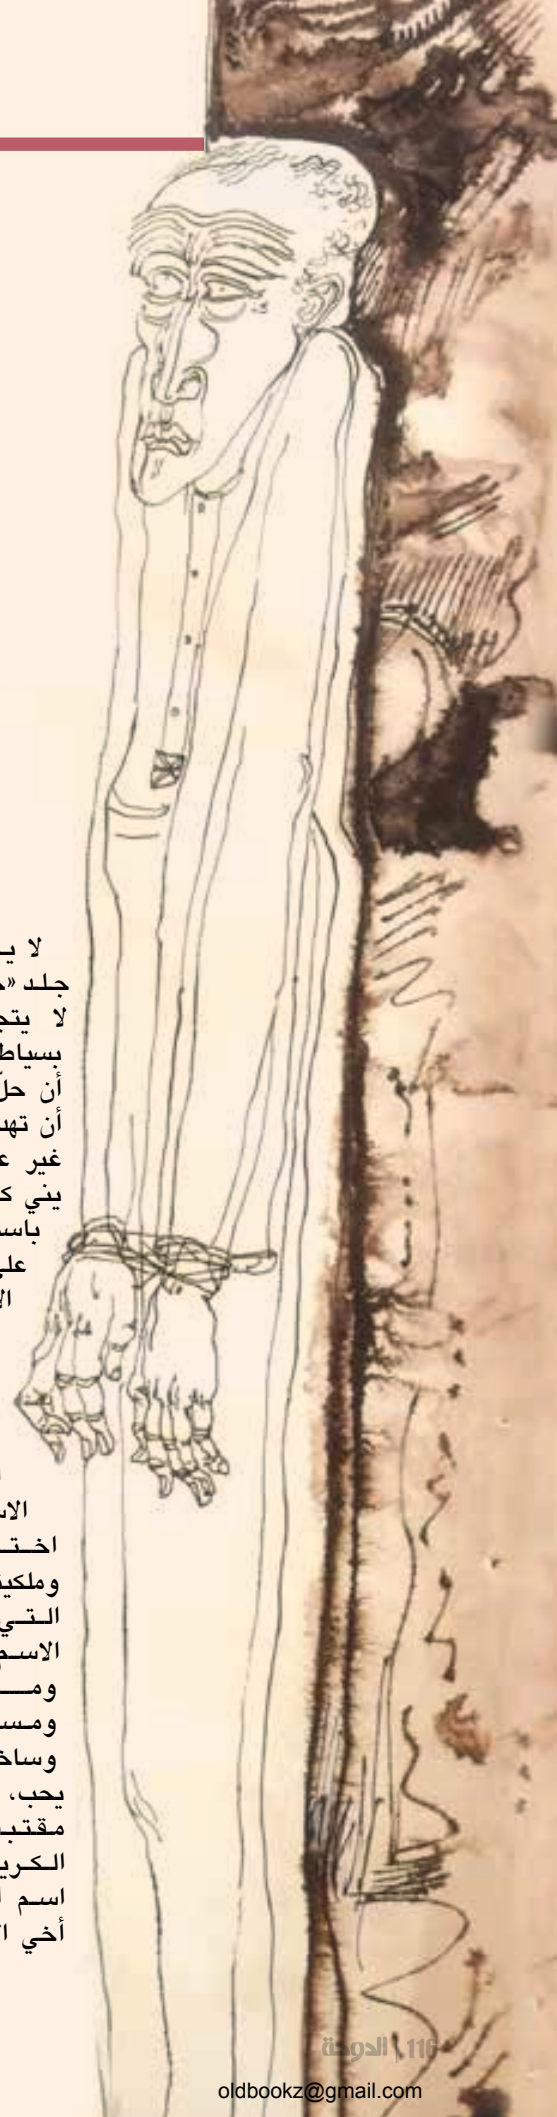 لا يـ
جلد «
لا يتجـ
بسياط
أن حلّ
أن تهد
غير عـ
يني كـ
باسـ
على
الا
الاسـ
اختـ
وملكيـ
التي
الاسم
ومـ
ومسـ
وساخـ
يحب،
مقتبـ
الكريـ
اسم ا
أخي ا
116 | الدوحة
oldbookz@gmail.com